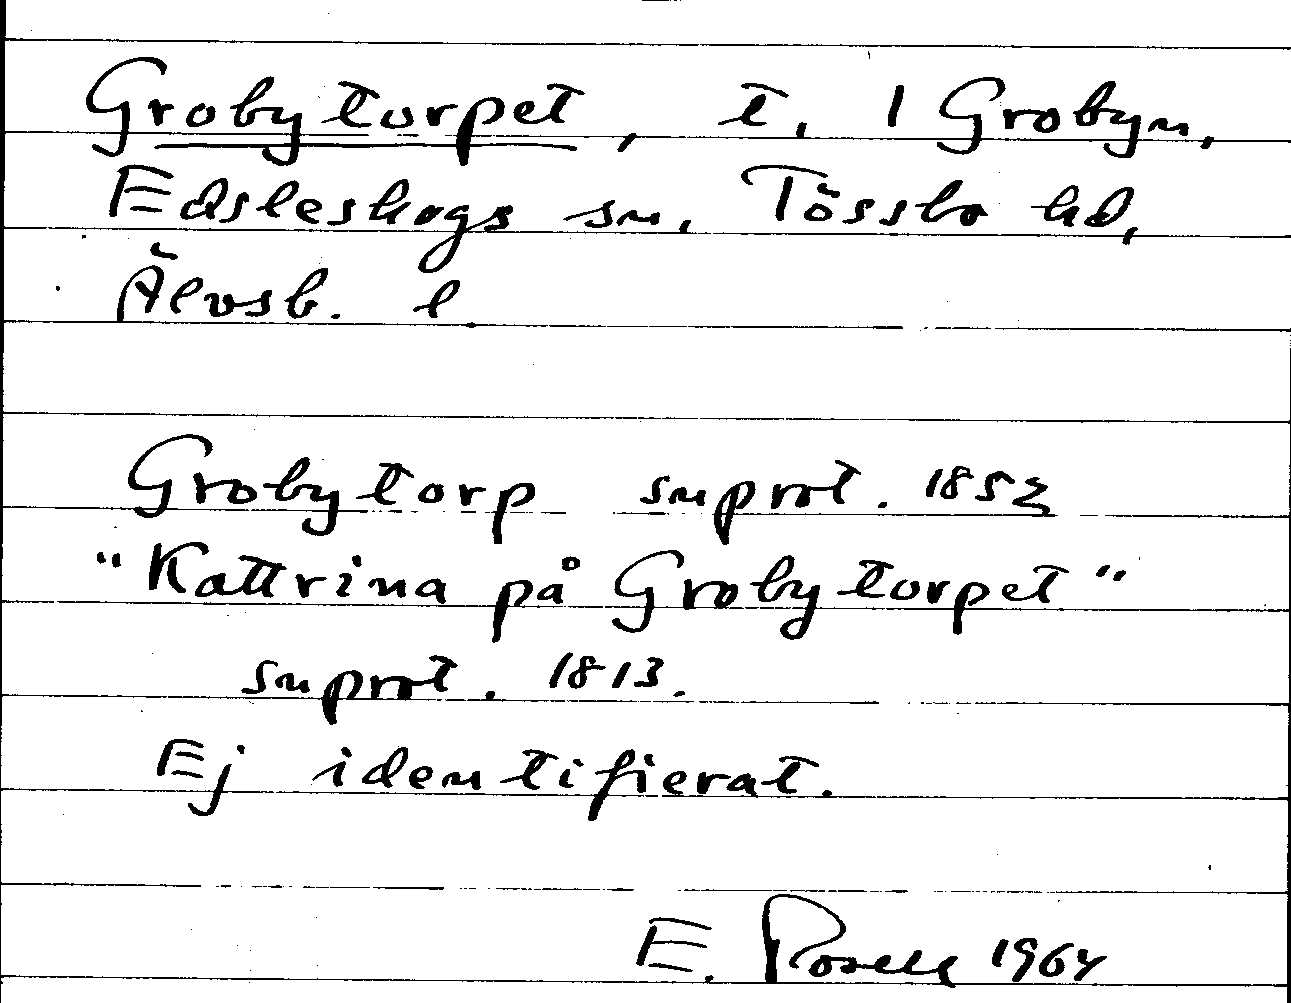 Grobytorpet, t. 1 Grobyn,
Edsleskogs sn, Tössbo hd,
Älvsb. l
Grobytorp snprot. 1852
"Kattrina på Grobytorpet"
snprot. 1813.
Ej identifierat.
E. Rosell 1964